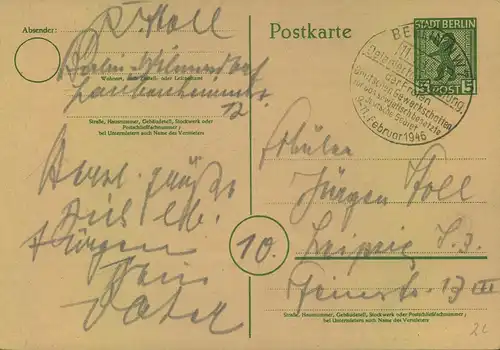 Absender:
R. Koll
Berlin-Wilmersdorf
Wohnort, auch Zustell- oder Leitpostamt
12.
Straße, Hausnummer, Gebäudeteil, Stockwerk oder
Postschließfachnummer;
bei Untermietern auch Name des Vermieters
Herzl. Grüße
Dich lb.
Jürgen
Dein
Vater
Postkarte
STADT BERLIN
5 POST 5
BERLIN
Delegiertentagung
der Freien
Deutschen Gewerkschaften
für das sowjetisch besetzte
deutsche Gebiet
9.-11. Februar 1946
Schüler
Jürgen Koll
10.
Leipzig S.3.
13 III
Straße, Hausnummer, Gebäudeteil, Stockwerk oder Postschließfachnummer;
bei Untermietern auch Name des Vermieters